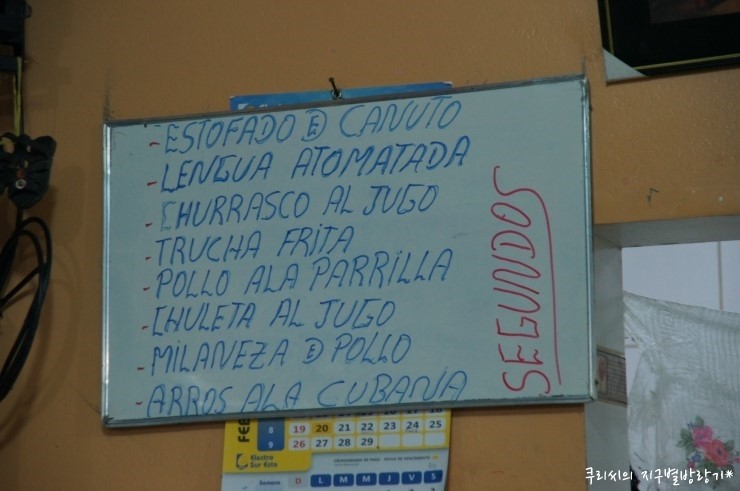 - ESTOFADO DE CANUTO
- LENGUA ATOMATADA
- CHURRASCO AL JUGO
- TRUCHA FRITA
- POLLO ALA PARRILLA
- CHULETA AL JUGO
- MILANEZA DE POLLO
- ARROS ALA CUBANA
SEGUNDOS
FEB
8 19 20 21 22 23 24 25
9 26 27 28 29
Electro
Sur Este
Semana D L M M J V S
쿠리씨의 지구별방랑기*